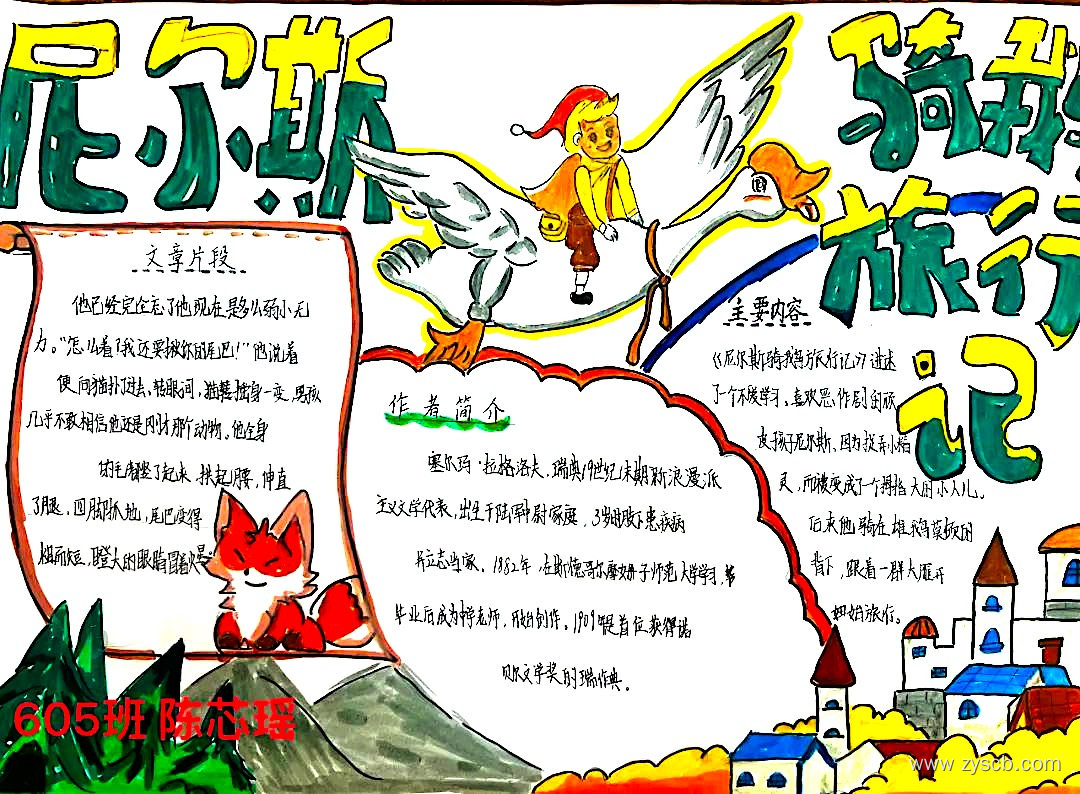 尼尔斯
骑鹅
旅行
记
文章片段
他已经完全忘了他现在是多么弱小无
力。"怎么着?我还要揪你的尾巴!"他说着
便向猫扑过去,转眼间,猫摇身一变,男孩
几乎不敢相信他还是刚才那个动物。他全身
的毛都竖了起来,拱起腰,伸直
了腿,四脚抓地,尾巴变得
粗而短,瞪大的眼睛冒着火星
作者简介
塞尔玛·拉格洛夫,瑞典19世纪末期新浪漫派
主义文学代表,出生于陆军中尉家庭,3岁时
并立志当家。1882年在斯德哥尔摩女子师范大学学习,
毕业后成为中学老师,开始创作。1909年是首位获得诺
贝尔文学奖的瑞典作
主要内容
《尼尔斯骑鹅旅行记》讲述
了一个不爱学习、喜欢恶作剧的顽
皮孩子尼尔斯,因为捉弄小精
灵,而被变成了一个拇指大的小人儿。
后来他骑在雄鹅莫顿的
背下,跟着一群大雁开
始旅行。
605班 陈芯瑶
www.zyscb.com